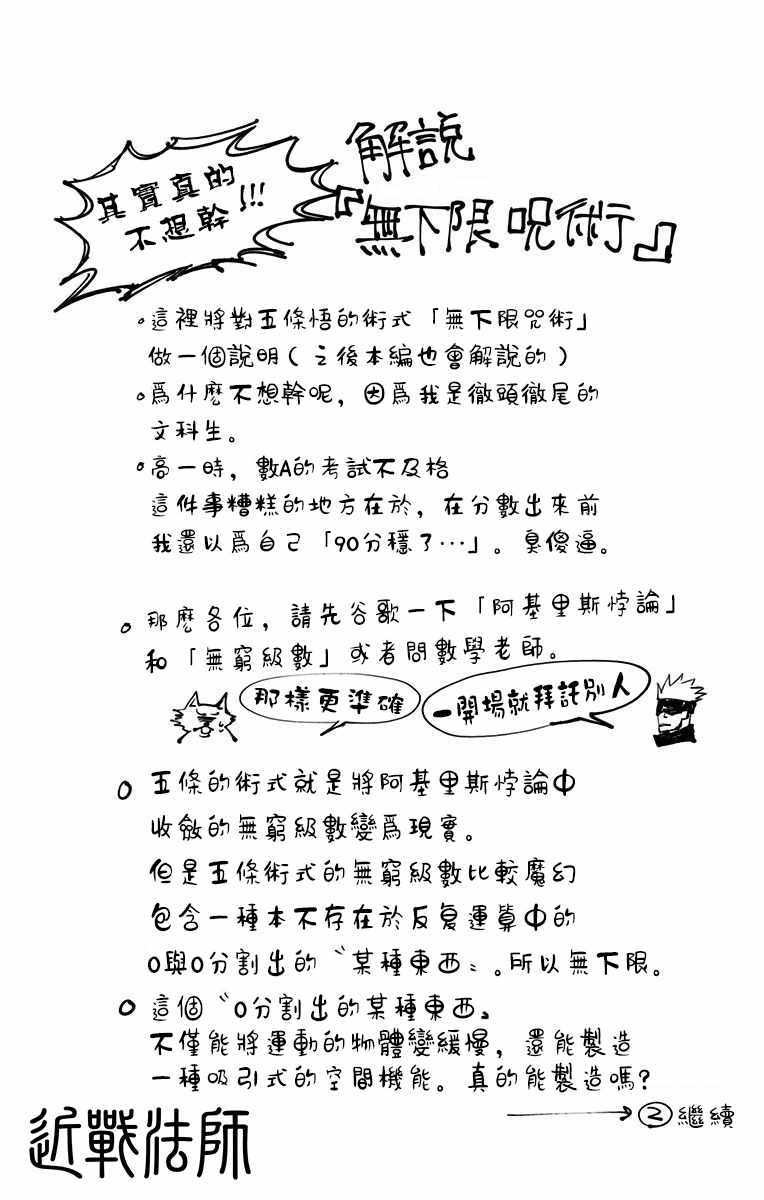 解說
『無下限呪術』
其實真的
不想幹!!!
。這裡將對五條悟的術式「無下限咒術」
做一個說明(之後本編也會解說的)
。爲什麽不想幹呢，因爲我是徹頭徹尾的
文科生。
。高一時，數A的考試不及格
這件事糟糕的地方在於，在分數出來前
我還以爲自己「90分穩了…」。臭傻逼。
。那麽各位，請先谷歌一下「阿基里斯悖論」
和「無窮級數」或者問數學老師。
那樣更準確
一開場就拜託別人
○五條的術式就是將阿基里斯悖論中
收斂的無窮級數變爲現實。
但是五條術式的無窮級數比較魔幻
包含一種本不存在於反复運算中的
0與0分割出的〝某種東西〟。所以無下限。
○這個〝0分割出的某種東西〟
不僅能將運動的物體變緩慢，還能製造
一種吸引式的空間機能。真的能製造嗎?
→②繼續
近戰法師